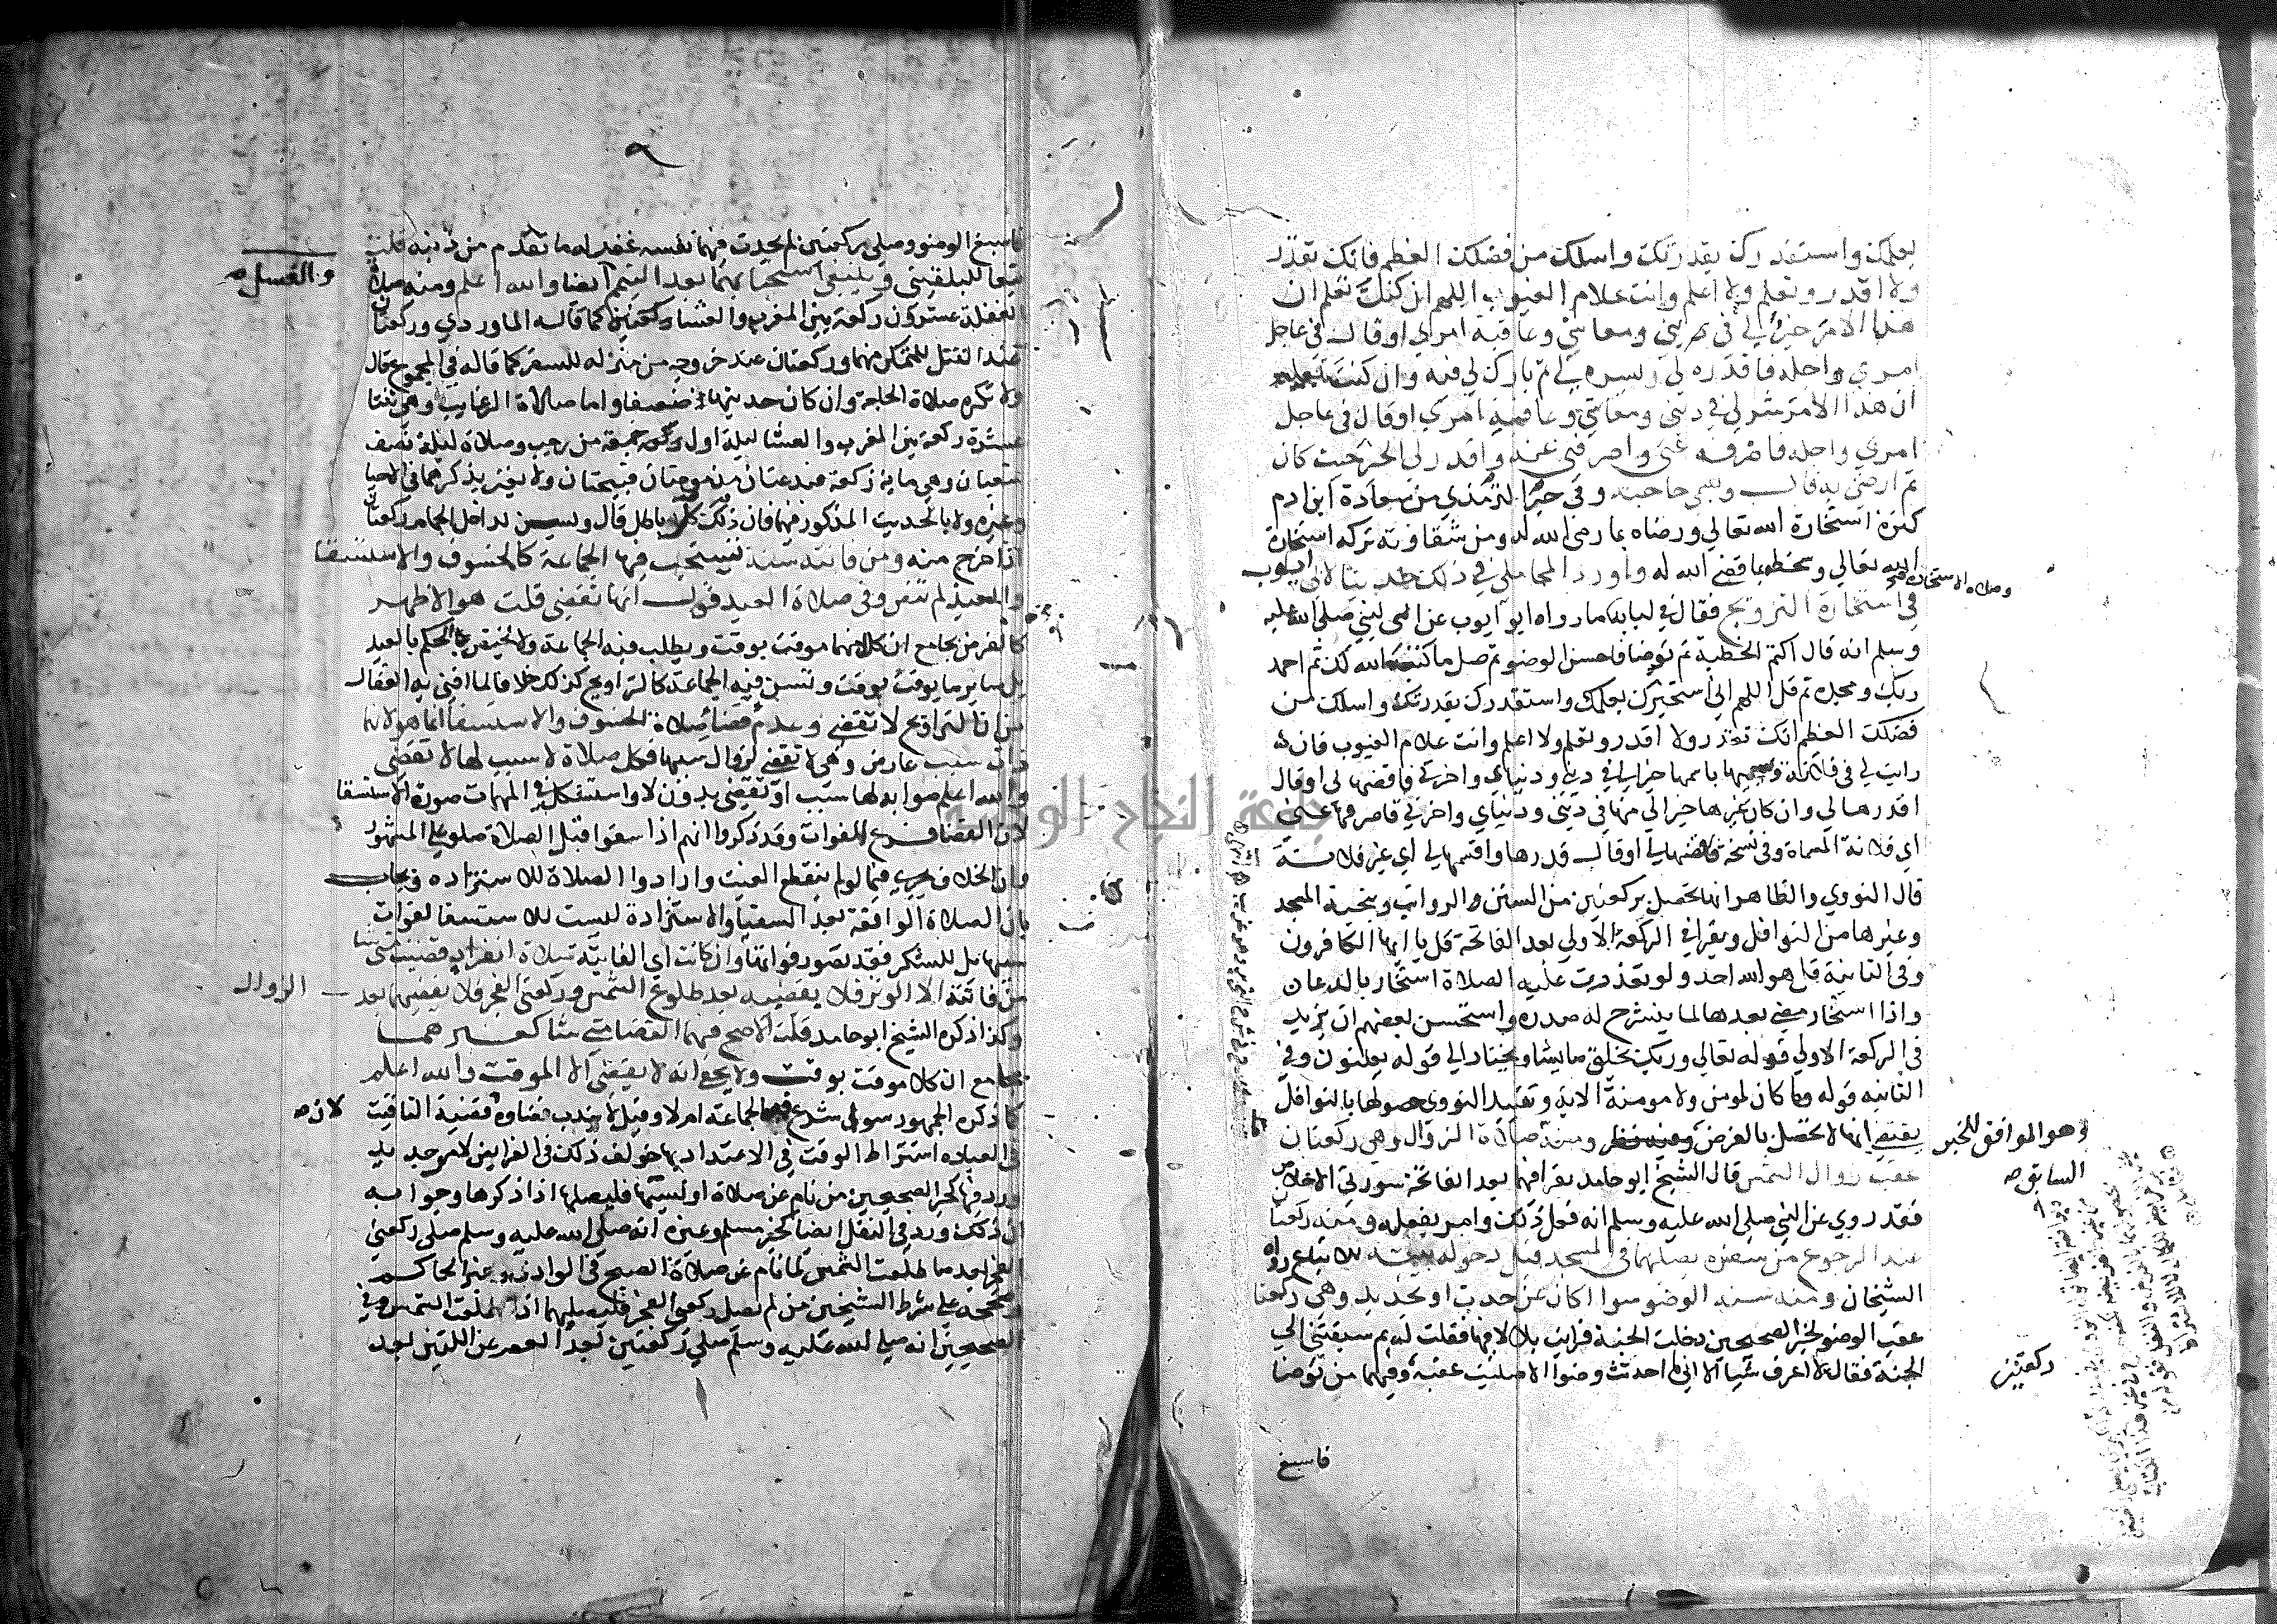 بعلمك واستقدرك بقدرتك واسلك من فضلك العظيم فانك تقدر
ولا اقدر وتعلم ولا اعلم وانت علام الغيوب اللهم ان كنت تعلم ان
هذا الامر خير لي في ديني ومعاشي وعاقبة امري او قال في عاجل
امري واجله فاقدره لي ويسره لي ثم بارك لي فيه وان كنت تعلم
ان هذا الامر شر لي في ديني ومعاشي وعاقبة امري او قال في عاجل
امري واجله فاصرفه عني واصرفني عنه واقدر لي الخير حيث كان
ثم ارضني به قال ويسمي حاجته وفي خبر الترمذي من سعادة ابن ادم
كثرة استخارة الله تعالي ورضاه بما رضي الله له ومن شقاوته تركه استخارة
الله تعالي وسخطه بما قضي الله له واورد المحاملي في ذلك حديثا لابي ايوب
وصلاه الاستخاره
في استخارة التزويج فقال في لبابه ما رواه ابو ايوب عن النبي صلي الله عليه
وسلم انه قال اكتم الخطبة ثم توضا فاحسن الوضو ثم صل ما كتب الله لك ثم احمد
ربك ومجده ثم قل اللهم اني استخيرك بعلمك واستقدرك بقدرتك واسلك من
فضلك العظيم انك تقدر ولا اقدر وتعلم ولا اعلم وانت علام الغيوب فان
رايت لي في فلانة ويسميها باسمها خيرا لي في ديني ودنياي واخرتي فاقضها لي او قال
اقدرها لي وان كان غيرها خيرا لي منها في ديني ودنياي واخرتي فاصرفها عني
اي فلانة المسماة وفي نسخة فاقضها لي او قال قدرها واقسمها لي اي غير فلانة
قال النووي والظاهر انها تحصل بركعتين من السنن والرواتب وبتحية المسجد
وغيرها من النوافل ويقرا في الركعة الاولي بعد الفاتحة قل يا ايها الكافرون
وفي الثانية قل هو الله احد ولو تعذرت عليه الصلاة استخار بالدعا
واذا استخار مضي بعدها لما ينشرح له صدره واستحسن بعضهم ان يزيد
في الركعة الاولي قوله تعالي وربك يخلق ما يشا ويختار الي قوله يعلنون وفي
الثانيه قوله وما كان لمومن ولا مومنة الاية وتقييد النووي حصولها بالنوافل
يقتضي انها لا تحصل بالفرض ومنه صلاة الزوال وهي ركعتان
وهو الموافق للخبر
السابق صح
عقب زوال الشمس قال الشيخ ابو حامد يقرا فيهما بعد الفاتحة سورتي الاخلاص
فقد روي عن النبي صلي الله عليه وسلم انه فعل ذلك وامر بفعله ومنه ركعتا
عند الرجوع من سفره يصليهما في المسجد قبل دخوله بيته للاتباع رواه
الشيخان ومنه سنة الوضو سوا اكان عن حدث او تجديد وهي ركعتا
عقب الوضو لخبر الصحيحين دخلت الجنة فرايت بلالا فيها فقلت له بم سبقتني الي
الجنة فقال لا اعرف شيا الا اني ما احدثت وضوا الا صليت عقبه وفيهما من توضا
ركعتين
فاسبغ
٩
فاسبغ الوضو وصلي ركعتين لم يحدث فيهما نفسه غفر له ما تقدم من ذنبه قلت
تبعا للبلقيني وينبغي استحبابهما بعد التيمم ايضا والله اعلم ومنه صلاة
والغسل صح
الغفلة عشرون ركعة بين المغرب والعشا كما قاله الماوردي وركعتان
عند القتل للمتمكن منهما وركعتان عند خروجه من منزله للسفر كما قاله في المجموع قال
ولا تكره صلاة الحاجة وان كان حديثها ضعيفا واما صلاة الرغايب وهي ثنتا
عشرة ركعة بين المغرب والعشا ليلة اول جمعة من رجب وصلاة ليلة نصف
شعبان وهي ماية ركعة فبدعتان مذمومتان قبيحتان ولا يغتر بذكرهما في الاحيا
وغيره ولا بالحديث المذكور فيهما فان ذلك باطل قال ويسن لداخل الحمام ركعتان
اذا خرج منه ومن فاتته سنة تستحب فيها الجماعة كالخسوف والاستسقا
والعيد لم تقض وفي صلاة العيد قول انها تقضي قلت هو الاظهر
كالفرض بجامع ان كلا منهما موقت بوقت ويطلب فيه الجماعة ولا يختص الحكم بالعيد
بل ساير ما يوقت بوقت وتسن فيه الجماعة كالتراويح كذلك خلافا لما افتي به القفال
من ان التراويح لا تقضي وعدم قضا صلاة الخسوف والاستسقا انما هو لانها
ذات سبب عارض وهي لا تقضي لزوال سببها فكل صلاة لا سبب لها لا تقضي
والله اعلم صوابه لها سبب او تقضي بدون لا واستشكل في المهمات صورة الاستسقا
لان القضا فرع الفوات وقد ذكروا انهم اذا سقوا قبل الصلاة صلوا علي المشهور
وان الخلاف يجري فيما لو لم ينقطع الغيث وارادوا الصلاة للاستزاده ويجاب
بان الصلاة الواقعة بعد السقيا والاستزادة ليست للاستسقا لفوات
سببها بل للشكر فقد تصور فواتها وان كانت اي الفايتة صلاة انفراد قضيت متي شا
من فاتته الا الوتر فلا يقضيه بعد طلوع الشمس وركعتي الفجر فلا يقضيهما بعد الزوال
وكذا ذكره الشيخ ابو حامد قلت الاصح فيهما القضا متي شا كغيرهما
بجامع ان كلا موقت بوقت ولا يخفي انه لا يقضي الا الموقت والله اعلم
كما ذكره الجمهور سوا شرع فيه الجماعة ام لا وقيل لا يندب قضاوه لان قضية التاقيت
في العباده اشتراط الوقت في الاعتداد بها خولف ذلك في الفرايض لامر جديد
ورد فيها كخبر الصحيحين من نام عن صلاة او نسيها فليصلها اذا ذكرها وجوابه
ان ذلك ورد في النفل ايضا كخبر مسلم وغيره انه صلي الله عليه وسلم صلي ركعتي
الفجر بعد ما طلعت الشمس لما نام عن صلاة الصبح في الوادي وخبر الحاكم
وصححه علي شرط الشيخين من لم يصل ركعتي الفجر فليصليهما اذا طلعت الشمس وفي
الصحيحين انه صلي الله عليه وسلم صلي ركعتين بعد العصر عن اللتين بعد
جامعة النجاح الوطنية